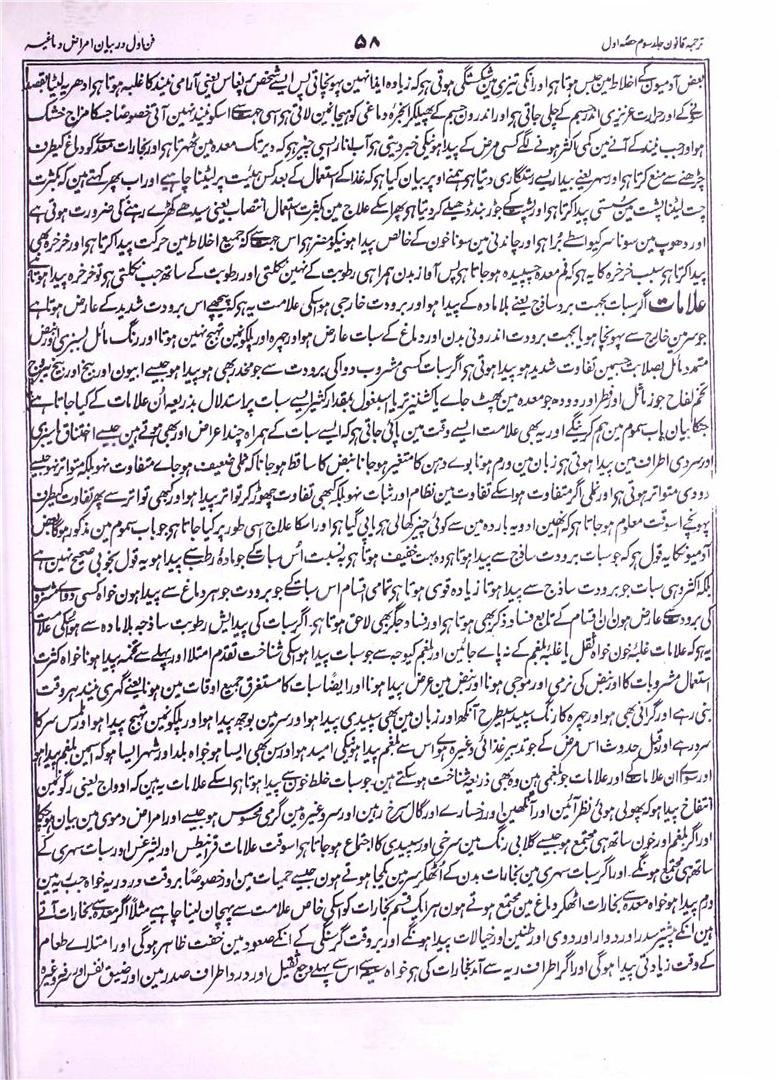 ترجمہ قانون جلد سوم حصّہ اول
۵۸
فن اول در بیان امراض دماغیہ
بعض آدمیون کے اخلاط مین حبس ہوتا ہے اور انکی تیزی مین شکستگی ہوتی ہے کہ زیادہ ایذا نہین پہونچاتی پس ایسے شخص پر نعاس یعنی آرامی نیند کا غلبہ ہوتا ہے ادھر یہ لیٹا بقصد
اور حرارت غریزی اندر جسم کے چلی جاتی ہے اور اندرون جسم کے پھیلکر ابخرۂ دماغی کو ہیجان مین لاتی ہے اسی جہت سے اسکو نیند نہین آتی خصوصًا جسکا مزاج خشک
ہو اور جب نیند کے آنے مین کمی اکثر ہونے لگے کسی مرض کے پیدا ہونیکی خبر دیتی ہے آب انار ایسی چیز ہے کہ دیر تک معدہ مین ٹھہرتا ہے اور بخارات معدہ کو دماغ کیطرف
چڑھنے سے منع کرتا ہے اور سہر یعنے بیداری سے رستگاری دیتا ہے ہمنے اوپر بیان کیا ہے کہ غذا کے استعمال کے بعد کس ہیئت پر لیٹنا چاہیے اور اب پھر کہتے ہین کہ بکثرت
چت لیٹنا پشت مین سستی پیدا کرتا ہے اور پشت کے جوڑ بند ڈھیلے کر دیتا ہے پھر اسکے علاج مین بکثرت استعمال انتصاب یعنی سیدھے کھڑے رہنے کی ضرورت ہوتی ہے
اور دھوپ مین سونا سر کیواسطے بُرا ہے اور چاندنی مین سونا خون کے خالص پیدا ہونیکو مضر ہے اس جہت سے کہ جمیع اخلاط مین حرکت پیدا کرتا ہے اور خرخرہ بھی
پیدا کرتا ہے سبب خرخرہ کا یہ ہے کہ فم معدہ چسپیدہ ہو جاتا ہے پس آواز بدن ہمراہی رطوبت کے نہین نکلتی اور رطوبت کے ساتھ جب نکلتی ہے تو خرخرہ پیدا ہوتا ہے
علامات اگر سبات بجہت برد ساذج یعنے بلا مادہ کے پیدا ہو اور برودت خارجی ہو اسکی علامت یہ ہے کہ پیچھے اس برودت شدید کے عارض ہوتا ہے
جو سر مین خارج سے پہونچا ہو یا بجہت برودت اندرونی بدن اور دماغ کے سبات عارض ہو اور چہرہ اور پلکونمین تہبج نہین ہوتا اور رنگ مائل بسبزی اور نبض
متمدد مائل بصلابت جسمین تفاوت شدید ہو پیدا ہوتی ہے اگر سبات کسی مشروب دوا کی برودت سے جو مخدر بھی ہو پیدا ہو جیسے افیون اور بیخ اور بیخ یبروج
تخم لفاح جوز ماثل اور فطر اور دودھ جو معدہ مین پھٹ جائے یا کشنیز تر یا اسبغول بمقدار کثیر ایسے سبات پر استدلال بذریعہ اُن علامات کے کیا جاتا ہے
جنکا بیان باب سموم مین ہم کرینگے اور یہ بھی علامت ایسے وقت مین پائی جاتی ہے کہ ایسے سبات کے ہمراہ چند اعراض اور بھی ہوتے ہین جیسے اختناق یا سبزی
اور سردی اطراف مین پیدا ہوتی ہے زبان مین ورم ہونا بوے دہن کا متغیر ہو جانا نبض کا ساقط ہو جانا کہ نملی ضعیف ہو جائے متفاوت نہو بلکہ متواتر ہو جیسے
دودی متواتر ہوتی ہے اور نملی اگر متفاوت ہو اسکے تفاوت مین نظام اور ثبات نہو بلکہ کبھی تفاوت چھوڑ کر تواتر پیدا ہو اور کبھی تواتر سے پھر تفاوت کیطرف
پہونچے اسوقت معلوم ہو جاتا ہے کہ انھین ادویہ باردہ مین سے کوئی چیز کھائی ہو یا پی گیا ہے اور اسکا علاج اسی طور پر کیا جاتا ہے جو باب سموم مین مذکور ہوگا بعض
آدمیونکا یہ قول ہے کہ جو سبات برودت ساذج سے پیدا ہوتا ہے وہ بہت خفیف ہوتا ہے بہ نسبت اُس سبات کے جو مادۂ رطب سے پیدا ہو یہ قول بخوبی صحیح نہین ہے
بلکہ اکثر وہی سبات جو برودت ساذج سے پیدا ہوتا زیادہ قوی ہوتا ہے تمامی اقسام اس سبات کے جو برودت جوہر دماغ سے پیدا ہون خواہ کسی دواے مشروب
کی برودت سے عارض ہون ان اقسام کے تابع فساد ذکر بھی ہوتا ہے اور فساد جگر بھی لاحق ہوتا ہے۔ اگر سبات کی پیدایش رطوبت ساذجہ بلا مادہ سے ہو اسکی علامت
یہ ہے کہ علامات غلبۂ خون خواہ ثقل یا غلبۂ بلغم کے نہ پائے جائین اور بلغم کیوجہ سے جو سبات پیدا ہو اسکی شناخت تقدم امتلا اور پہلے سے تخمہ پیدا ہونا خواہ کثرت
استعمال مشروبات کا اور نبض کی نرمی اور موجی ہونا اور نبض مین عرض پیدا ہونا اور ایضًا سبات کا مستغرق جمیع اوقات مین ہونا یعنے گہری نیند ہر وقت
بنی رہے اور گرانی بھی ہو اور چہرہ کا رنگ سپید اسیطرح آنکھ اور زبان مین بھی سپیدی پیدا ہو اور سر مین بوجھ پیدا ہو اور پلکونمین تہبج پیدا ہو اور لمس سر کا
سرد رہے اور قبل حدوث اس مرض کے جو تدبیر غذائی وغیرہ ہو اس سے بلغم پیدا ہونیکی امید ہو اور سن بھی ایسا ہو خواہ بلد اور شہر ایسا ہو کہ اسمین بلغم پیدا ہو
اور سواے ان علامات کے اور علامات جو بلغمی ہین وہ بھی ذریعۂ شناخت ہو سکتے ہین۔ جو سبات خلط خون سے پیدا ہوتا ہے اسکے علامات یہ ہین کہ اوداج یعنی رگونمین
انتفاخ پیدا ہو کہ پھولی ہوئی نظر آئین اور آنکھین اور رخسارے اور گال سرخ رہین اور سر وغیرہ مین گرمی محسوس ہو جیسے اور امراض دموی مین بیان ہو چکا
اور اگر بلغم اور خون ساتھ ہی مجتمع ہو جیسے گلابی رنگ مین سرخی اور سپیدی کا اجتماع ہو جاتا ہے اسوقت علامات قرانیطس اور لیثرغس اور سبات سہری کے
ساتھ ہی مجتمع ہونگے۔ اور اگر سبات سہری مین بخارات بدن کے اُٹھکر سر مین یکجا ہوتے ہون جیسے حمیات مین اور خصوصًا بروقت درد ریہ خواہ جب ریہ مین
ورم پیدا ہو خواہ معدہ سے بخارات اٹھکر دماغ مین مجتمع ہوتے ہون ہر ایک قسم بخارات کو اسکی خاص علامت سے پہچان لینا چاہیے مثلًا اگر معدہ سے بخارات آتے
ہین انکے پیشتر سدر اور دوار اور دوی اور طنین اور خیالات پیدا ہونگے اور بروقت گرسنگی کے انکے صعود مین خفت ظاہر ہوگی اور امتلاے طعام
کے وقت زیادتی پیدا ہوگی اور اگر اطراف ریہ سے آمد بخارات کی ہو خواہ سینے سے اس سے پہلے وجع ثقیل اور درد اطراف صدر مین اور ضیق نفس اور سرفہ وغیرہ